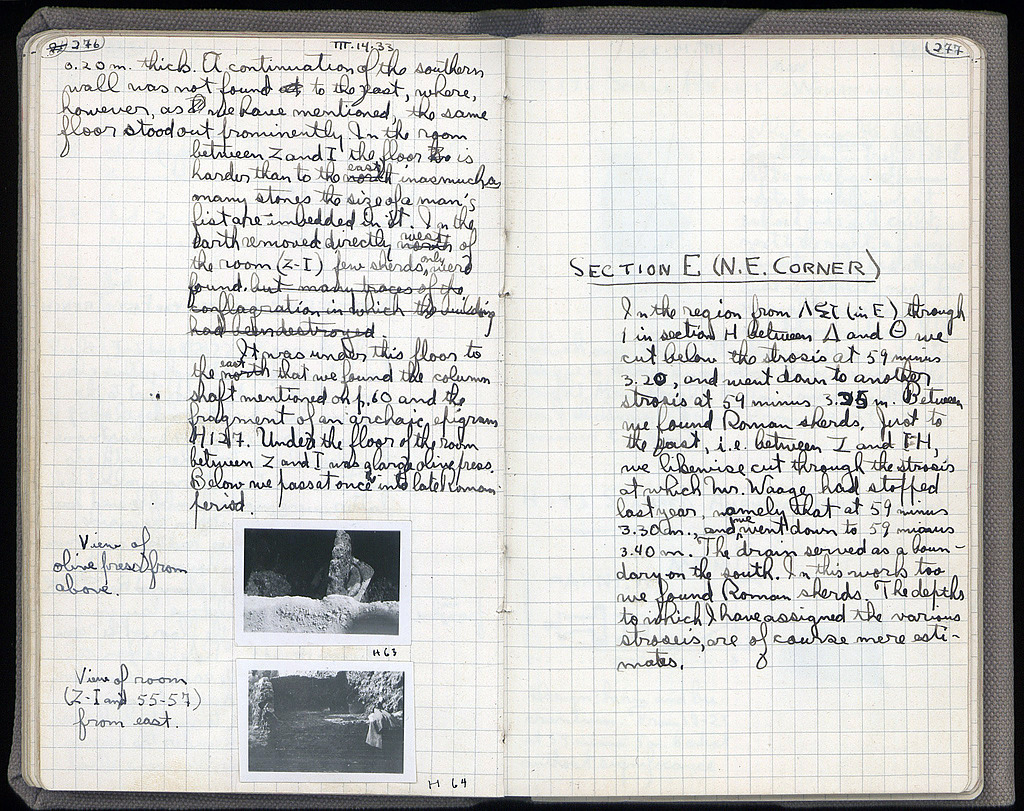 276
III.14.33
0.20 m. thick. A continuation of the southern
wall was not found to the east, where,
however, as we have mentioned, the same
floor stood out prominently. In the room
between Z and I the floor is
harder than to the north east inasmuch as
many stones the size of a man's
fist are imbedded in it. In the
earth removed directly north west of
the room (Z-I) few sherds only were
found. but many traces of the
conflagration in which the building
had been destroyed.
It was under this floor to
the north east that we found the column
shaft mentioned on p. 60 and the
fragment of an archaic epigram
H127. Under the floor of the room
between Z and I was a large olive press.
Below we pass at once into late Roman
period.
View of
olive press from
above.
H 63
View of room
(Z-I and 55-57)
from east.
H 64
277
SECTION E (N.E. CORNER)
In the region from (in E) through
1 in section H between Δ and Θ we
cut below the strosis at 59 minus
3.20, and went down to another
strosis at 59 minus 3.35 m. Between
we found Roman sherds. Just to
the east, i.e. between I and IH,
we likewise cut through the strosis
at which Mr. Waage had stopped
last year, namely that at 59 minus
3.30 m., and we went down to 59 minus
3.40 m. The drain served as a boun-
dary on the south. In this work too
we found Roman sherds. The depths
to which I have assigned the various
stroseis, are of course mere esti-
mates.